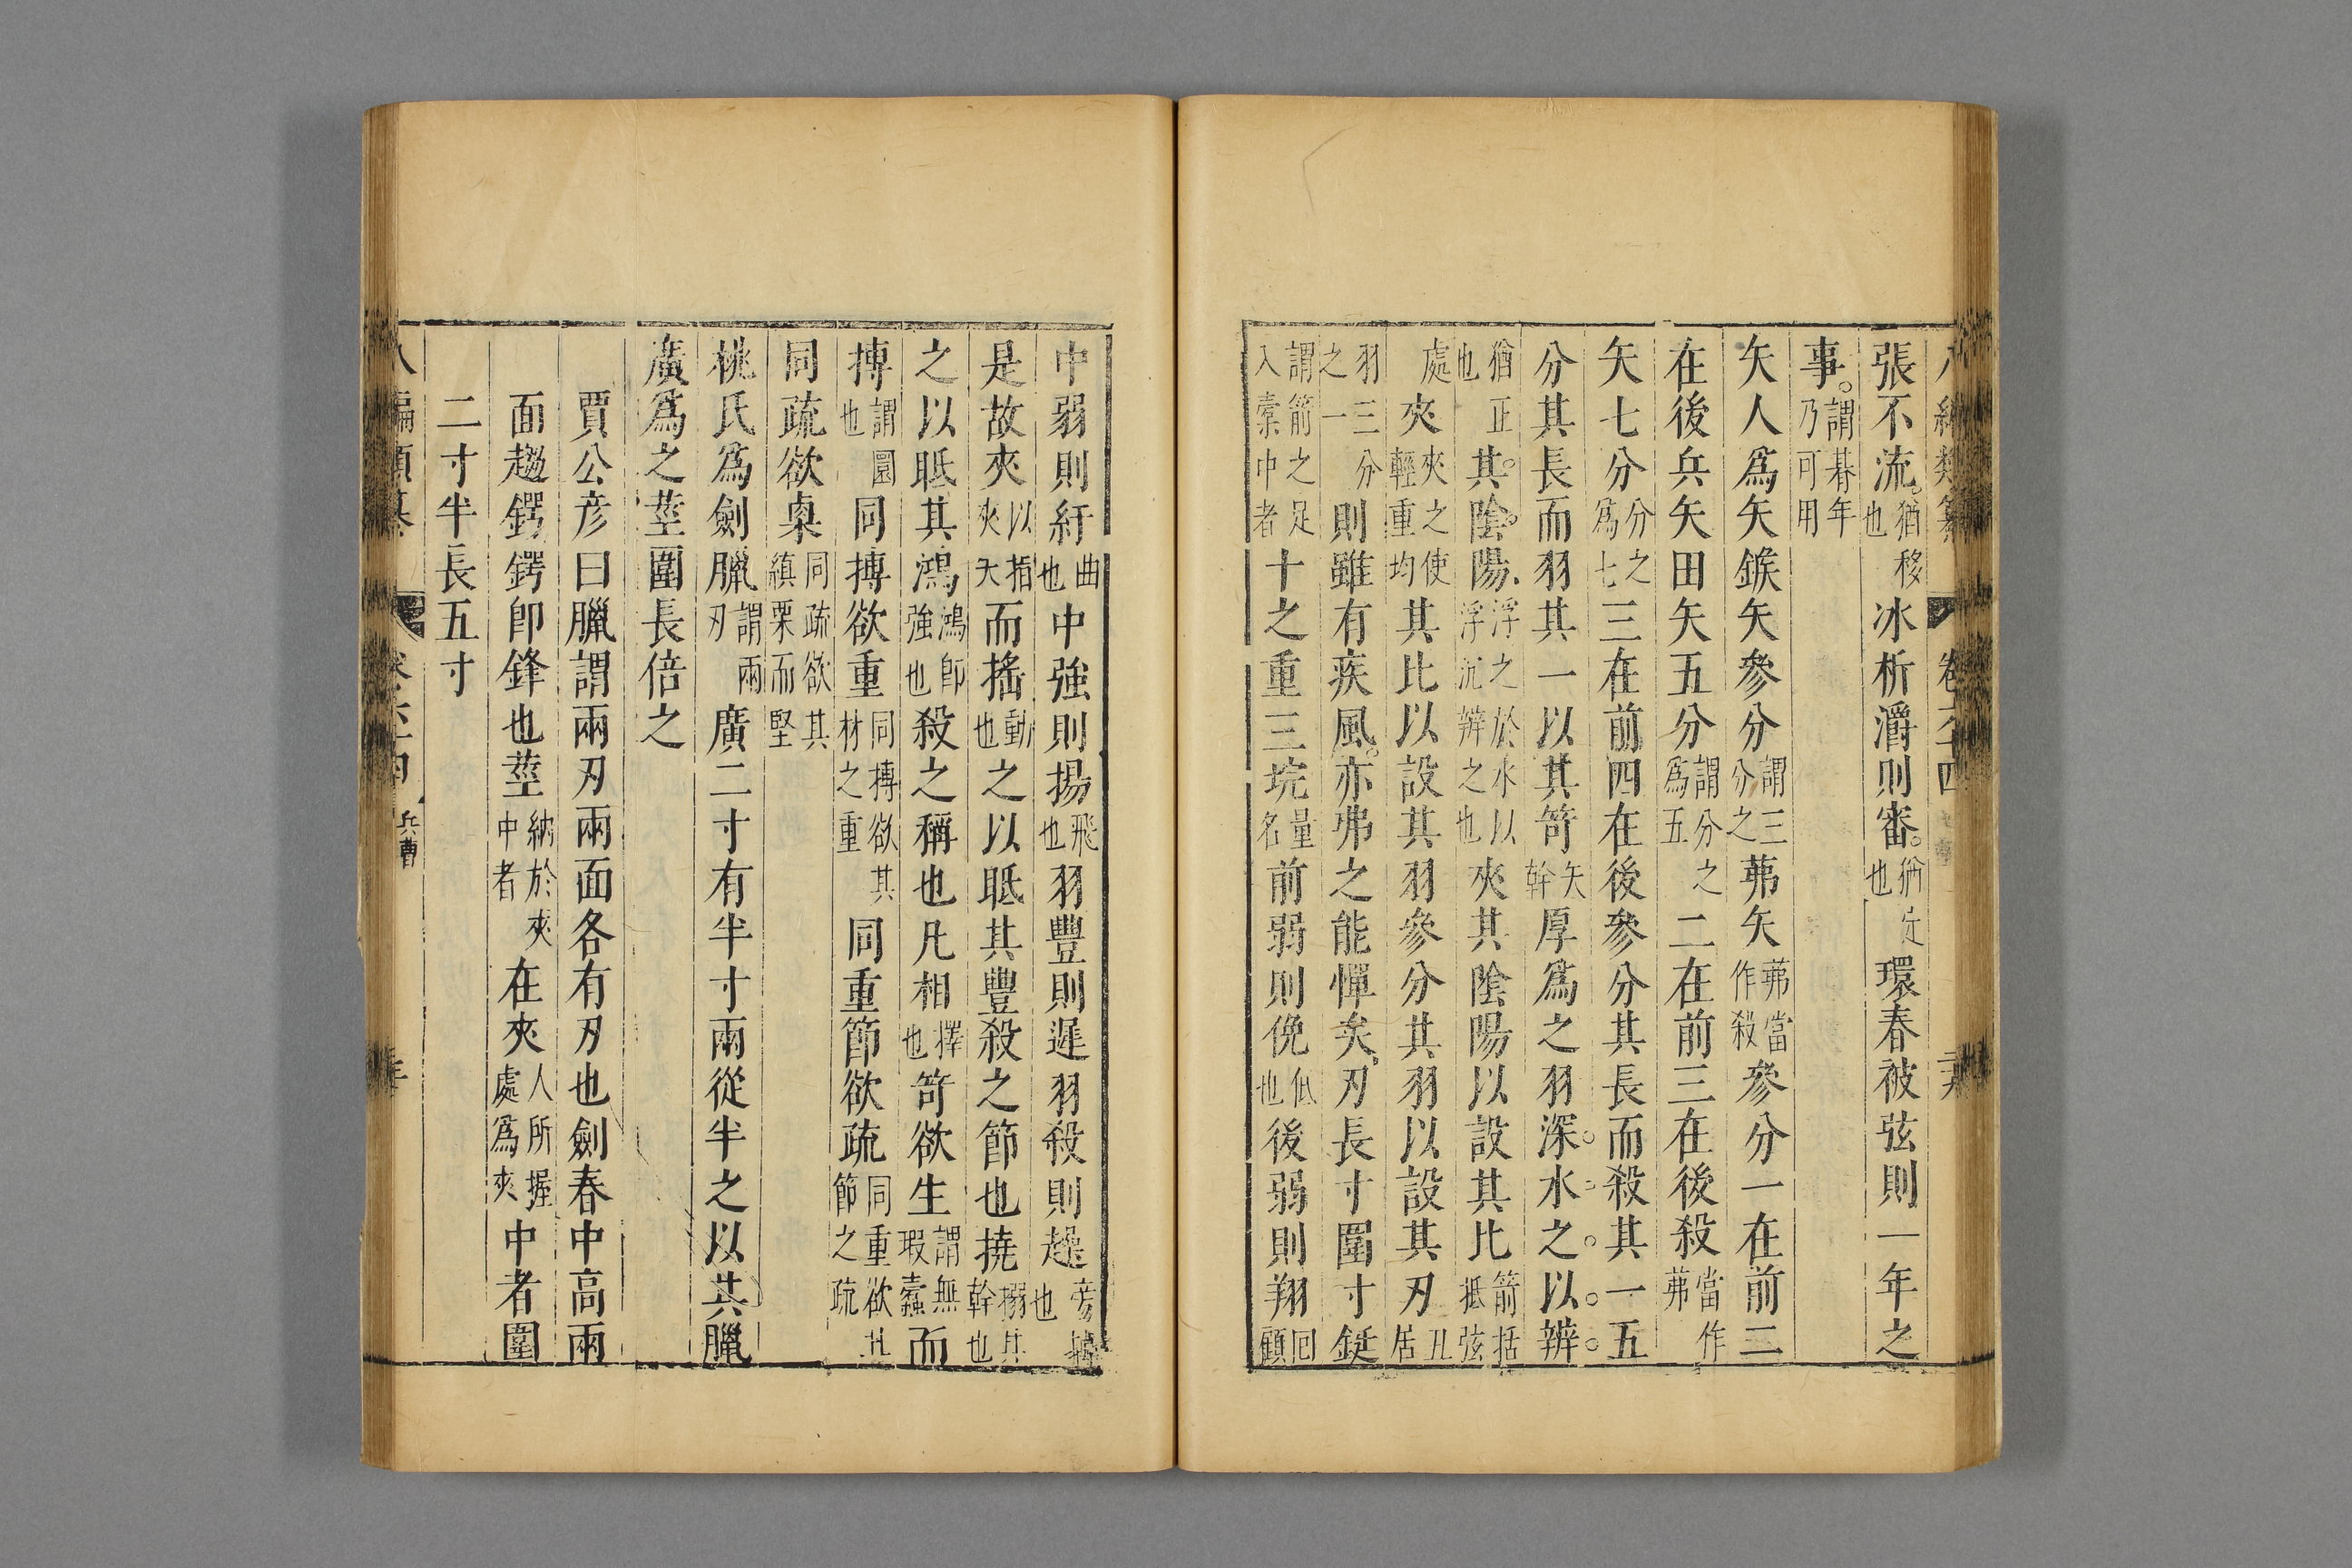 張不流猶移也冰析灂則審猶定也環春被弦則一年之
事謂朞年乃可用
矢人爲矢鍭矢參分謂三分之茀矢茀當作殺參分一在前二
在後兵矢田矢五分謂分之爲五二在前三在後殺當作茀
矢七分分之爲七三在前四在後參分其長而殺其一五
分其長而羽其一以其笴矢幹厚爲之羽深水之以辨
猶正也其陰陽浮之於水以浮沉辨之也夾其陰陽以設其比箭括抵弦
處夾夾之使輕重均其比以設其羽參分其羽以設其刃刃居
羽三分之一則雖有疾風亦弗之能憚矣刃長寸圍寸鋌
謂箭之足入槀中者十之重三垸量名前弱則俛低也後弱則翔回顧
中弱則紆曲也中強則揚飛也羽豐則遲羽殺則趮旁掉也
是故夾以指夾矢而搖動也之以眡其豐殺之節也撓搦其幹也
之以眡其鴻鴻卽強也殺之稱也凡相擇也笴欲生謂無瑕蠹而
摶謂圜也同摶欲重同摶欲其材之重同重節欲疏同重欲其節之疏
同疏欲㮚同疏欲其縝栗而堅
桃氏爲劍臘謂兩刃廣二寸有半寸兩從半之以其臘
廣爲之莖圍長倍之
賈公彥曰臘謂兩刃兩面各有刃也劍春中高兩
面趨鍔鍔卽鋒也莖納於夾中者在夾人所握處爲夾中者圍
二寸半長五寸
八編類纂 卷六十四 兵曹